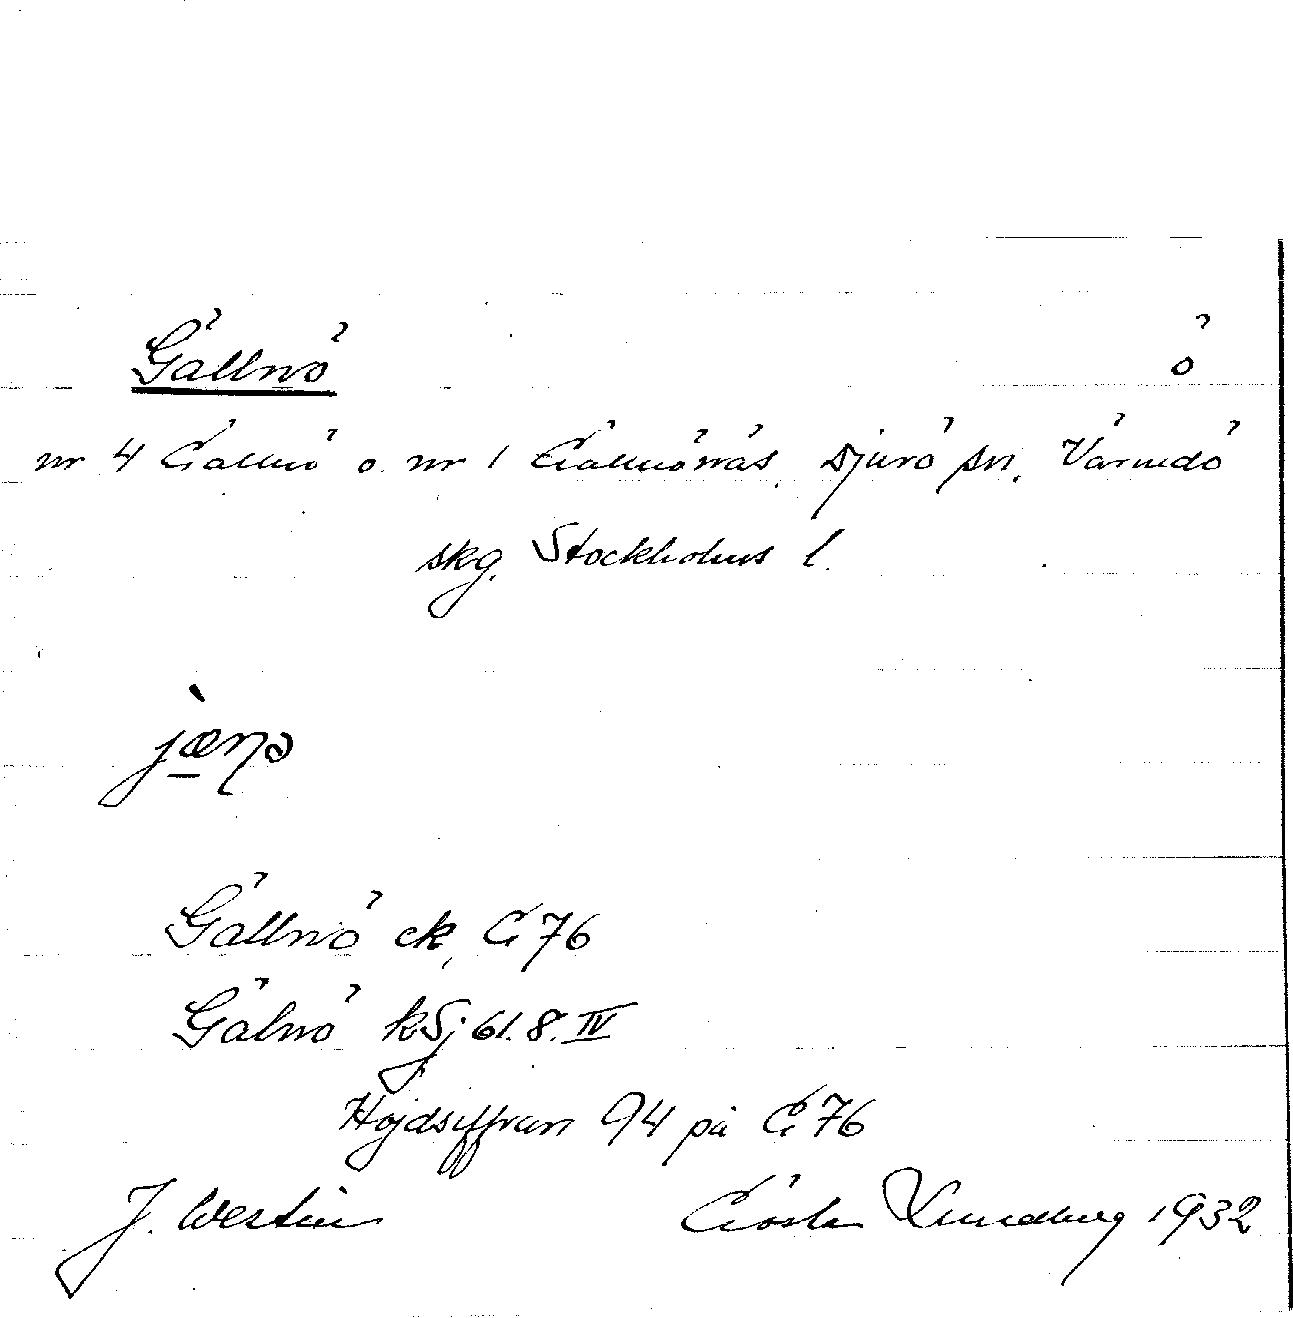 Gällnö ö
nr 4 Gällnö o. nr 1 Gällnönäs, Djurö sn, Värmdö
skg. Stockholms l.
Gällnö ek, G 76
Gälnö kSj 61.8.IV
Höjdsiffran 94 på G 76
J. Westin Gösta Lundberg 1932